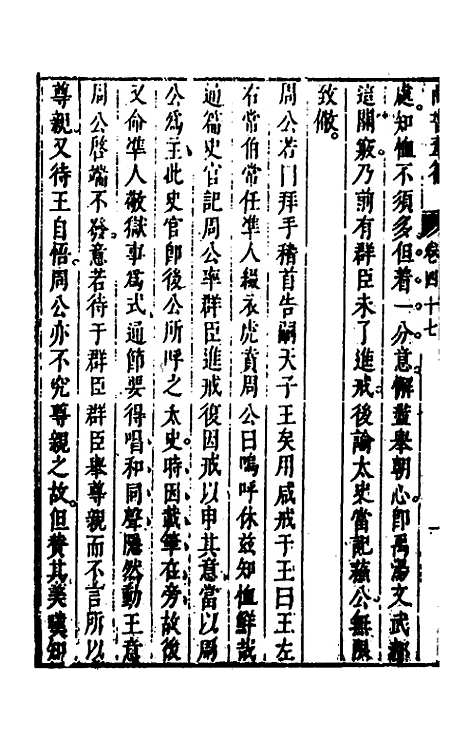 尚書葦籥 卷四十七 一
處知恤不須多但着一分意解蓋舉朝心卽禹湯文武都
這關竅乃前有群臣未了進戒後論太史當記蘇公無限
致儆。
周公若曰拜手稽首告嗣天子王矣用咸戒于王曰王左
右常伯常任準人綴衣虎賁周公曰嗚呼休茲知恤鮮哉
通篇史官記周公率群臣進戒復因戒以申其意當以周
公爲主此史官卽後公所呼之太史。時因載筆在旁故後
又命準人敬獄事爲式通節要得唱和同聲隱然動王意
周公啓端不發。意若待于群臣群臣舉尊親而不言所以
尊親又待王自悟。周公亦不究尊親之故。但贊其美嘆知